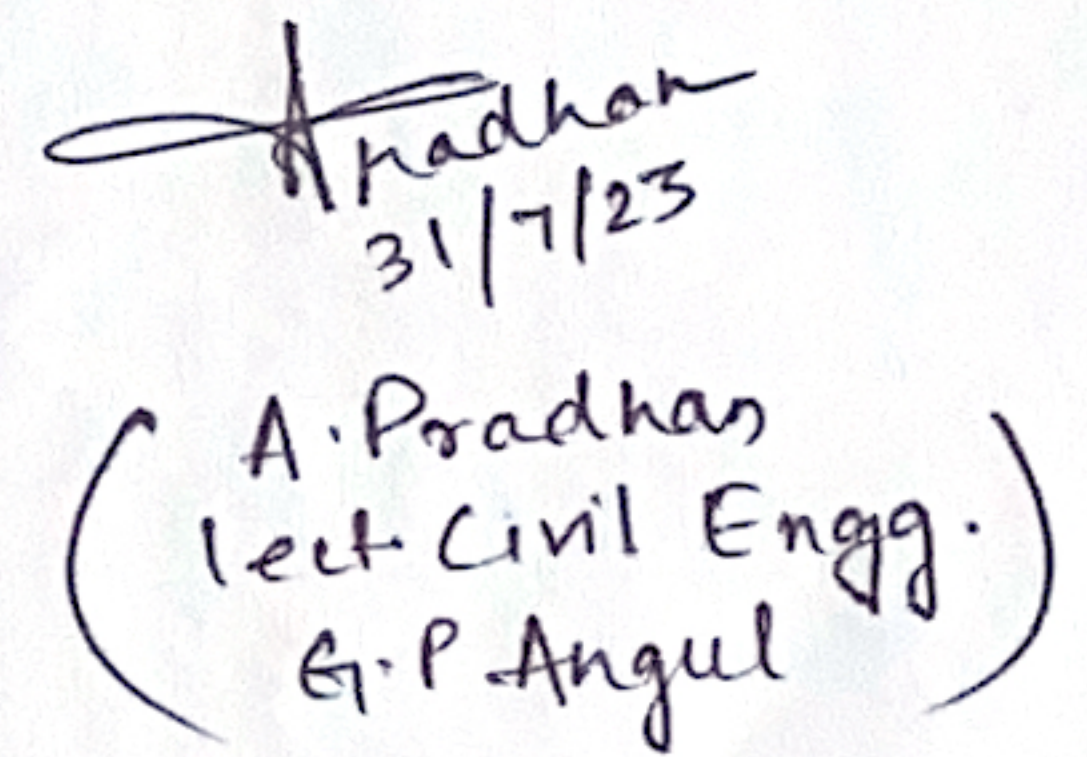 APradhan
31/7/23
(A. Pradhan
lect. Civil Engg.
G.P. Angul)